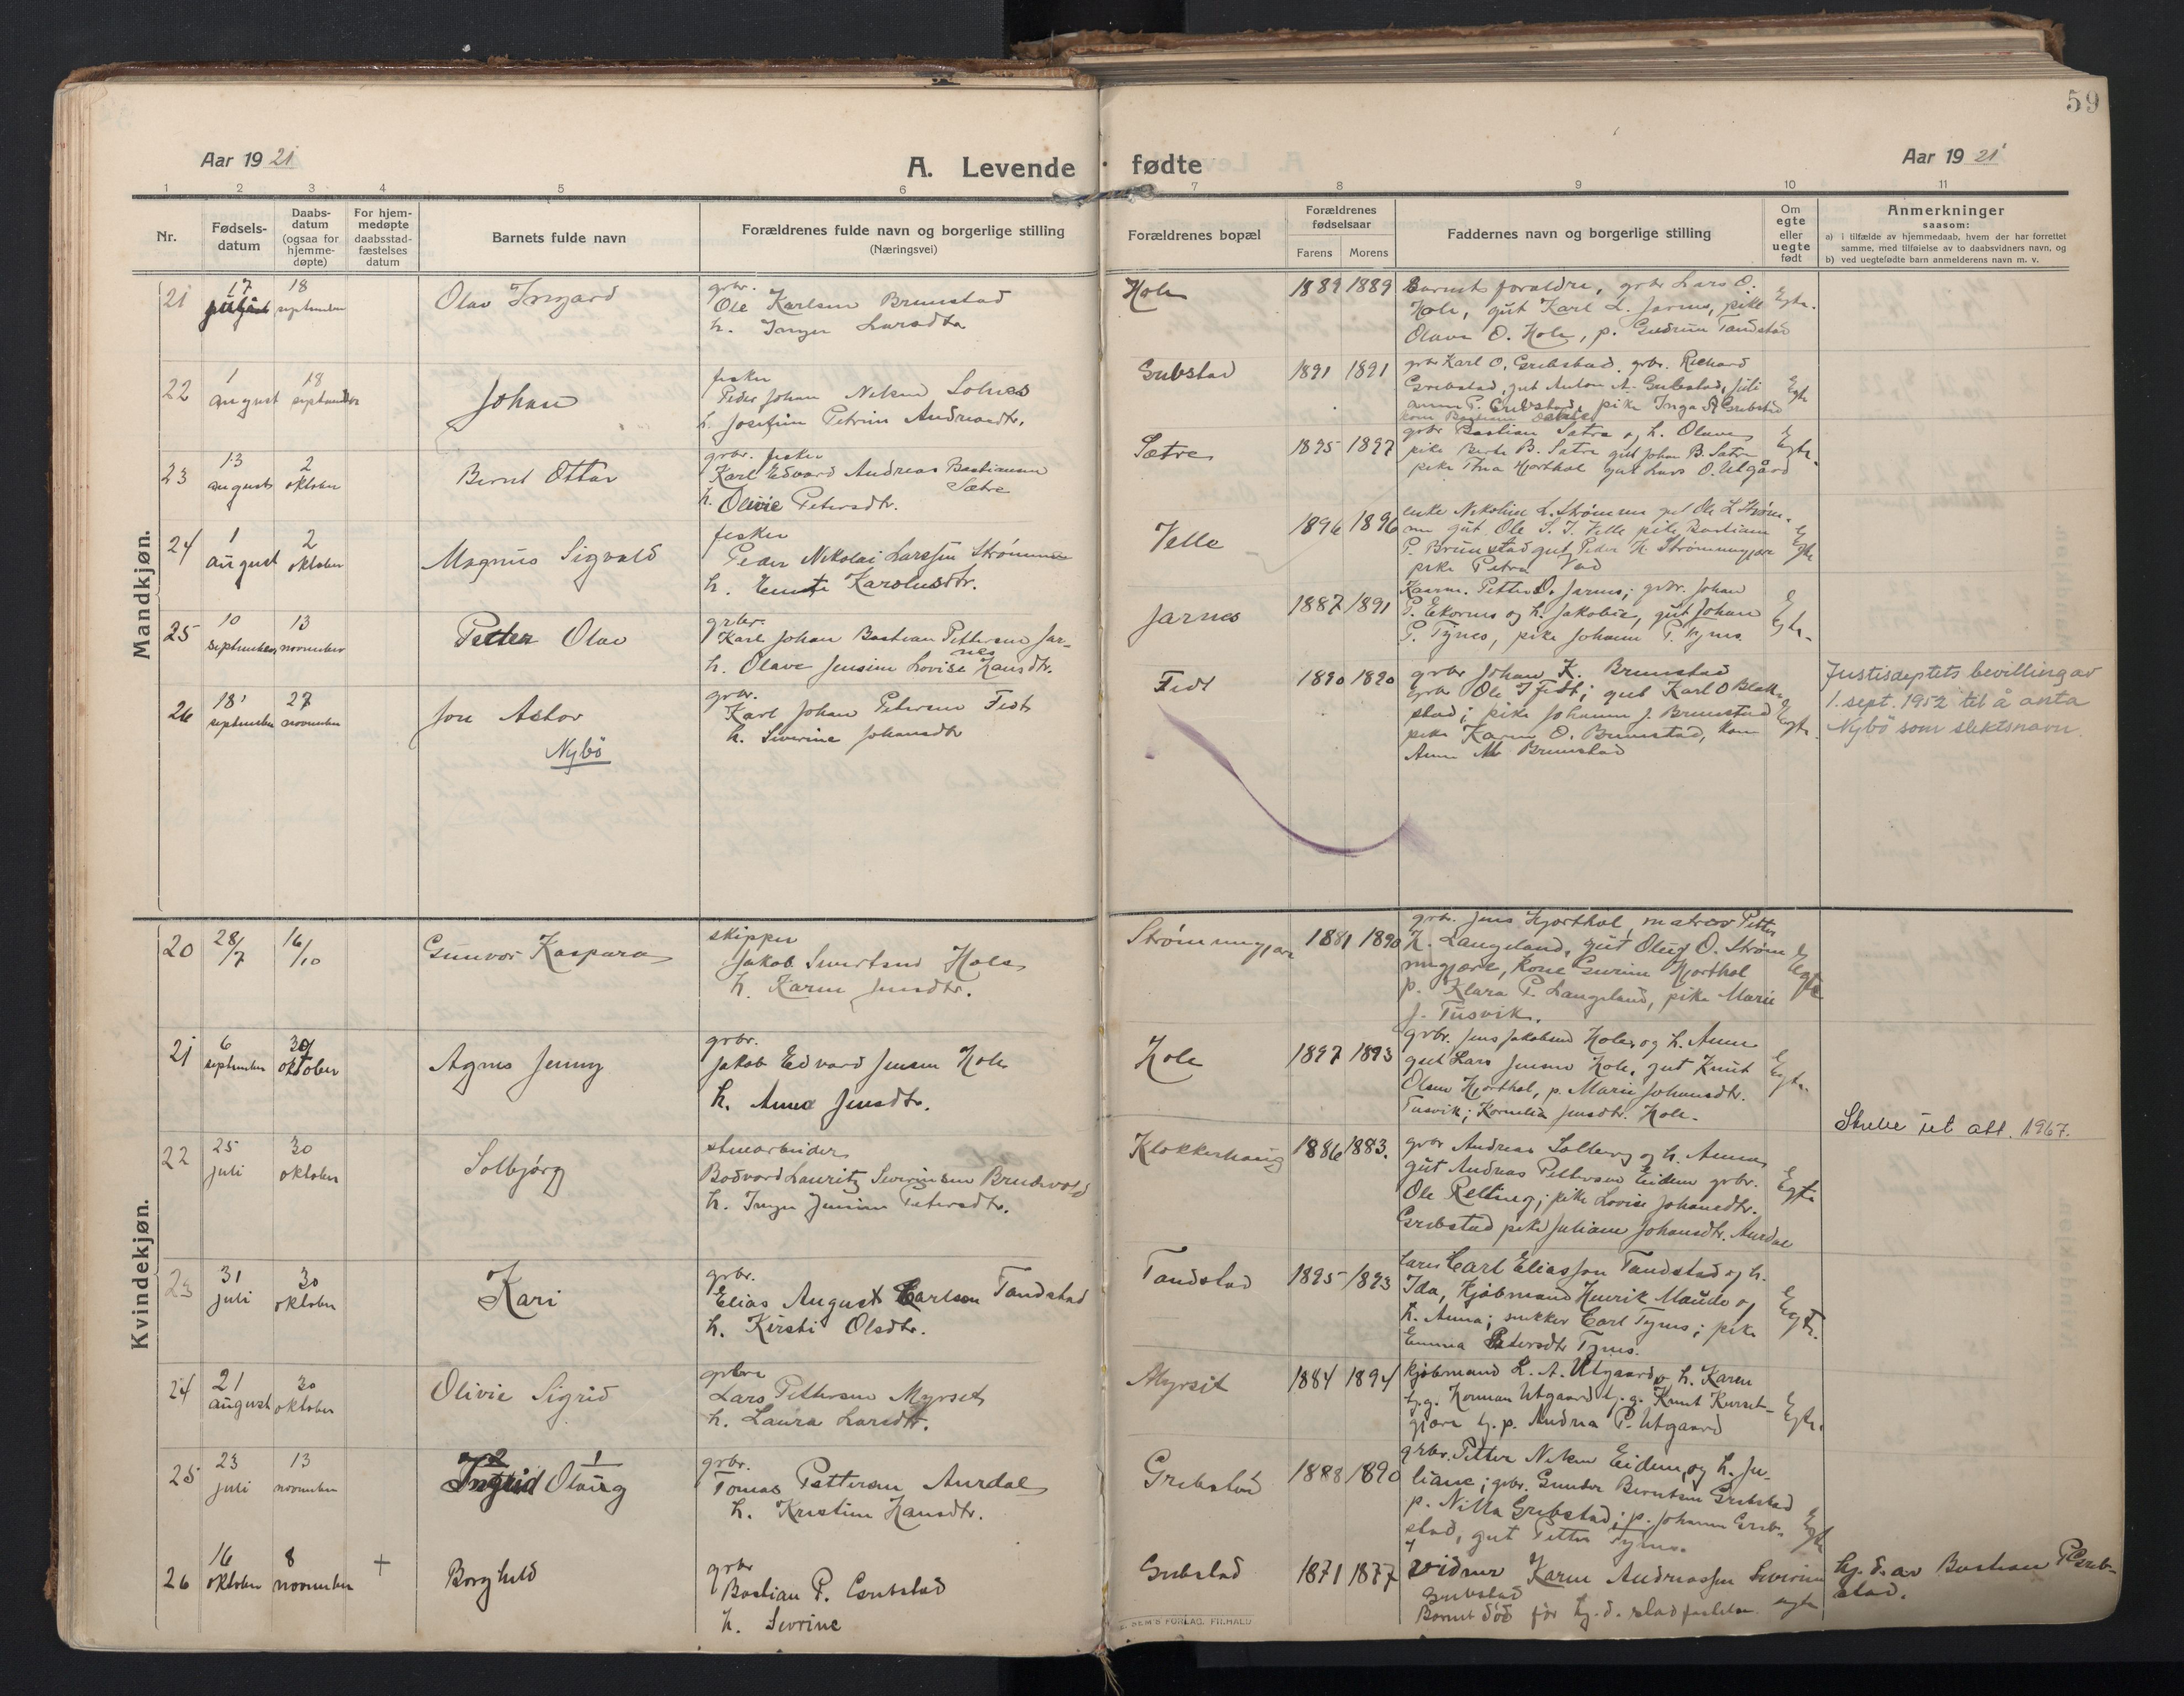 59
Aar 1921
A. Levende fødte
Aar 1921
1 2 3 4 5 6 7 8 9 10 11
Nr.
Fødsels-
datum
Daabs-
datum
(ogsaa for
hjemme-
døpte)
For hjem-
medøpte
daabsstad-
fæstelses
datum
Barnets fulde navn
Forældrenes fulde navn og borgerlige stilling
(Næringsvei)
Forældrenes bopæl
Forældrenes
fødselsaar
Farens Morens
Faddernes navn og borgerlige stilling
Om
egte
eller
uegte
født
Anmerkninger
saasom:
a) i tilfælde av hjemmedaab, hvem der har forrettet
samme, med tilføielse av to daabsvidners navn, og
b) ved uegtefødte barn anmelderens navn m. v.
Mandkjøn.
21 17 18 september
Olav Ingard
grbr.
Ole Karlsen Brunstad
h. Inger Larsdtr
Hole
1889 1889
Barnets foraldre, grbr Lars O.
Hole, gut Karl L. Jarnes, pike
Olava O. Hole, p. Gudrun Tandstad
Egte.
22 1 august 18 september
Johan
fisker
Peder Johan Nilsen Solnes
h. Josefine Petrine Andreasdtr.
Grebstad
1891 1891
grbr Karl O. Grebstad, grbr. Richard
Grebstad, gut Anton A. Grebstad,
Anna P. Grebstad, pike Inga A Grebstad
Egte
23 13 august 2 oktober
Bernt Ottar
grbr. fisker
Karl Edvard Andreas Bastiansen
Sætre
h. Olivie Petersdtr.
Sætre
1895 1897
grbr Bastian Sætre og h. Olave
pike Berte B. Sætre gut Johan B. Sætre
pike Thea Hjorthol gut Lars O. Utgård
Egte.
24 1 august 2 oktober
Magnus Sigvald
fisker
Peder Nikolai Larssen Strømme
h. Karolusdtr.
Velle
1896 1896
enke Nikoline L. Strømme gut Ole L Strøm-
me gut Ole S. J. Velle pike Bastiane
P. Brunstad gut Peder K. Strømmegjær
pike Petra Vad
Egte
25 10 september 13 november
Petter Olav
grbr.
Karl Johan Bastian Pettersen Jar-
nes
h. Olave Jensine Lovise Hansdtr.
Jarnes
1887 1891
Kaarm. Petter O. Jarnes; grbr. Johan
P. Ekornes og h. Jakobie, gut Johan
P. Tynes, pike Johanne P. Tynes
Egte.
26 18 september 27 november
Jon Astor
Nybö
grbr.
Karl Johan Petersen Fedt
h. Severine Johansdtr
Fedt
1890 1890
grbr Johan K. Brunstad
grbr Ole J Fedt; gut Karl O Blak-
stad; pike Johanne J. Brunstad
pike Karen O. Brunstad, kone
Anne M Brunstad
Egte.
Justisdeptets bevilling av
1. sept. 1952 til å anta
Nybö som slektsnavn.
Kvindekjøn.
20 28/7 16/10
Gunvor Kaspara
skipper
Jakob Sivertsen Hole
h. Karen Jensdtr.
Strømmegjære
1881 1890
grbr. Jens Hjorthol, matros Petter
K. Langeland, gut Oluf O. Strøm
megjære, kone Severine Hjorthol
p. Klara P. Langeland, pike Marie
J. Tusvik.
Egte
21 6 september 30 oktober
Agnes Jenny
grbr.
Jakob Edvard Jensen Hole
h. Anna Jensdtr.
Hole
1897 1893
grbr. Jens Jakobsen Hole, og h. Anne
gut Lars Jensen Hole, gut Knut
Olsen Hjorthol, p. Marie Johansdtr.
Tusvik; Kornelia Jensdtr. Hole.
Egte.
22 25 juli 30 oktober
Solbjørg
stuearbeider
Bodvard Lauritz Severinsen Brudevold
h. Inger Jensine Petersdtr.
Klokkerhaug
1886 1883.
grbr Andreas Solberg og h. Anna
gut Andreas Pettersen Eidem grbr.
Ole Relling; pike Lovise Johansdtr.
Grebstad pike Juliane Johansdtr. Aurdal
Egte
att. 1967.
23 31 juli 30 oktober
Kari
grbr.
Elias August Carlsen Tandstad
h. Kirsti Olsdtr.
Tandstad
1895 1893
Carl Eliassen Tandstad og h.
Ida, Kjøbmand Henrik Maude og
h. Anna; snekker Carl Tynes; pike
Emma Petersdtr Tynes.
Egte.
24 21 august 30 oktober
Olivie Sigrid
grbr
Lars Pettersen Myrset
h. Laura Larsdtr.
Myrset
1884 1894
kjøbmand L. A. Utgaard og h. Karen
Utgaard Knut Kurset-
gjære P. Utgaard
Egte.
25 23 juli 13 november
2 1
Ingrid Olaug
grbr.
Tomas Pettersen Aurdal
h. Kristine Hansdtr.
Grebstad
1888 1890
grbr. Petter Nilsen Eidem, og h. Ju-
liane; grbr. Gunder Berntsen Grebstad
p. Nilla Grebstad; p. Johanne Greb-
stad, gut Petter Tynes.
Egte
26 16 oktober 8 november +
Borghild
grbr
Bastian P. Grebstad
h. Sevrine
Grebstad
1871 1877
vidner Karen Andreassen Severine
Grebstad
Barnet död før hj. d. stadfæstelse.
egte
hj. d. av Bastian P Greb-
stad.
SEM'S FORLAG, FILHALD